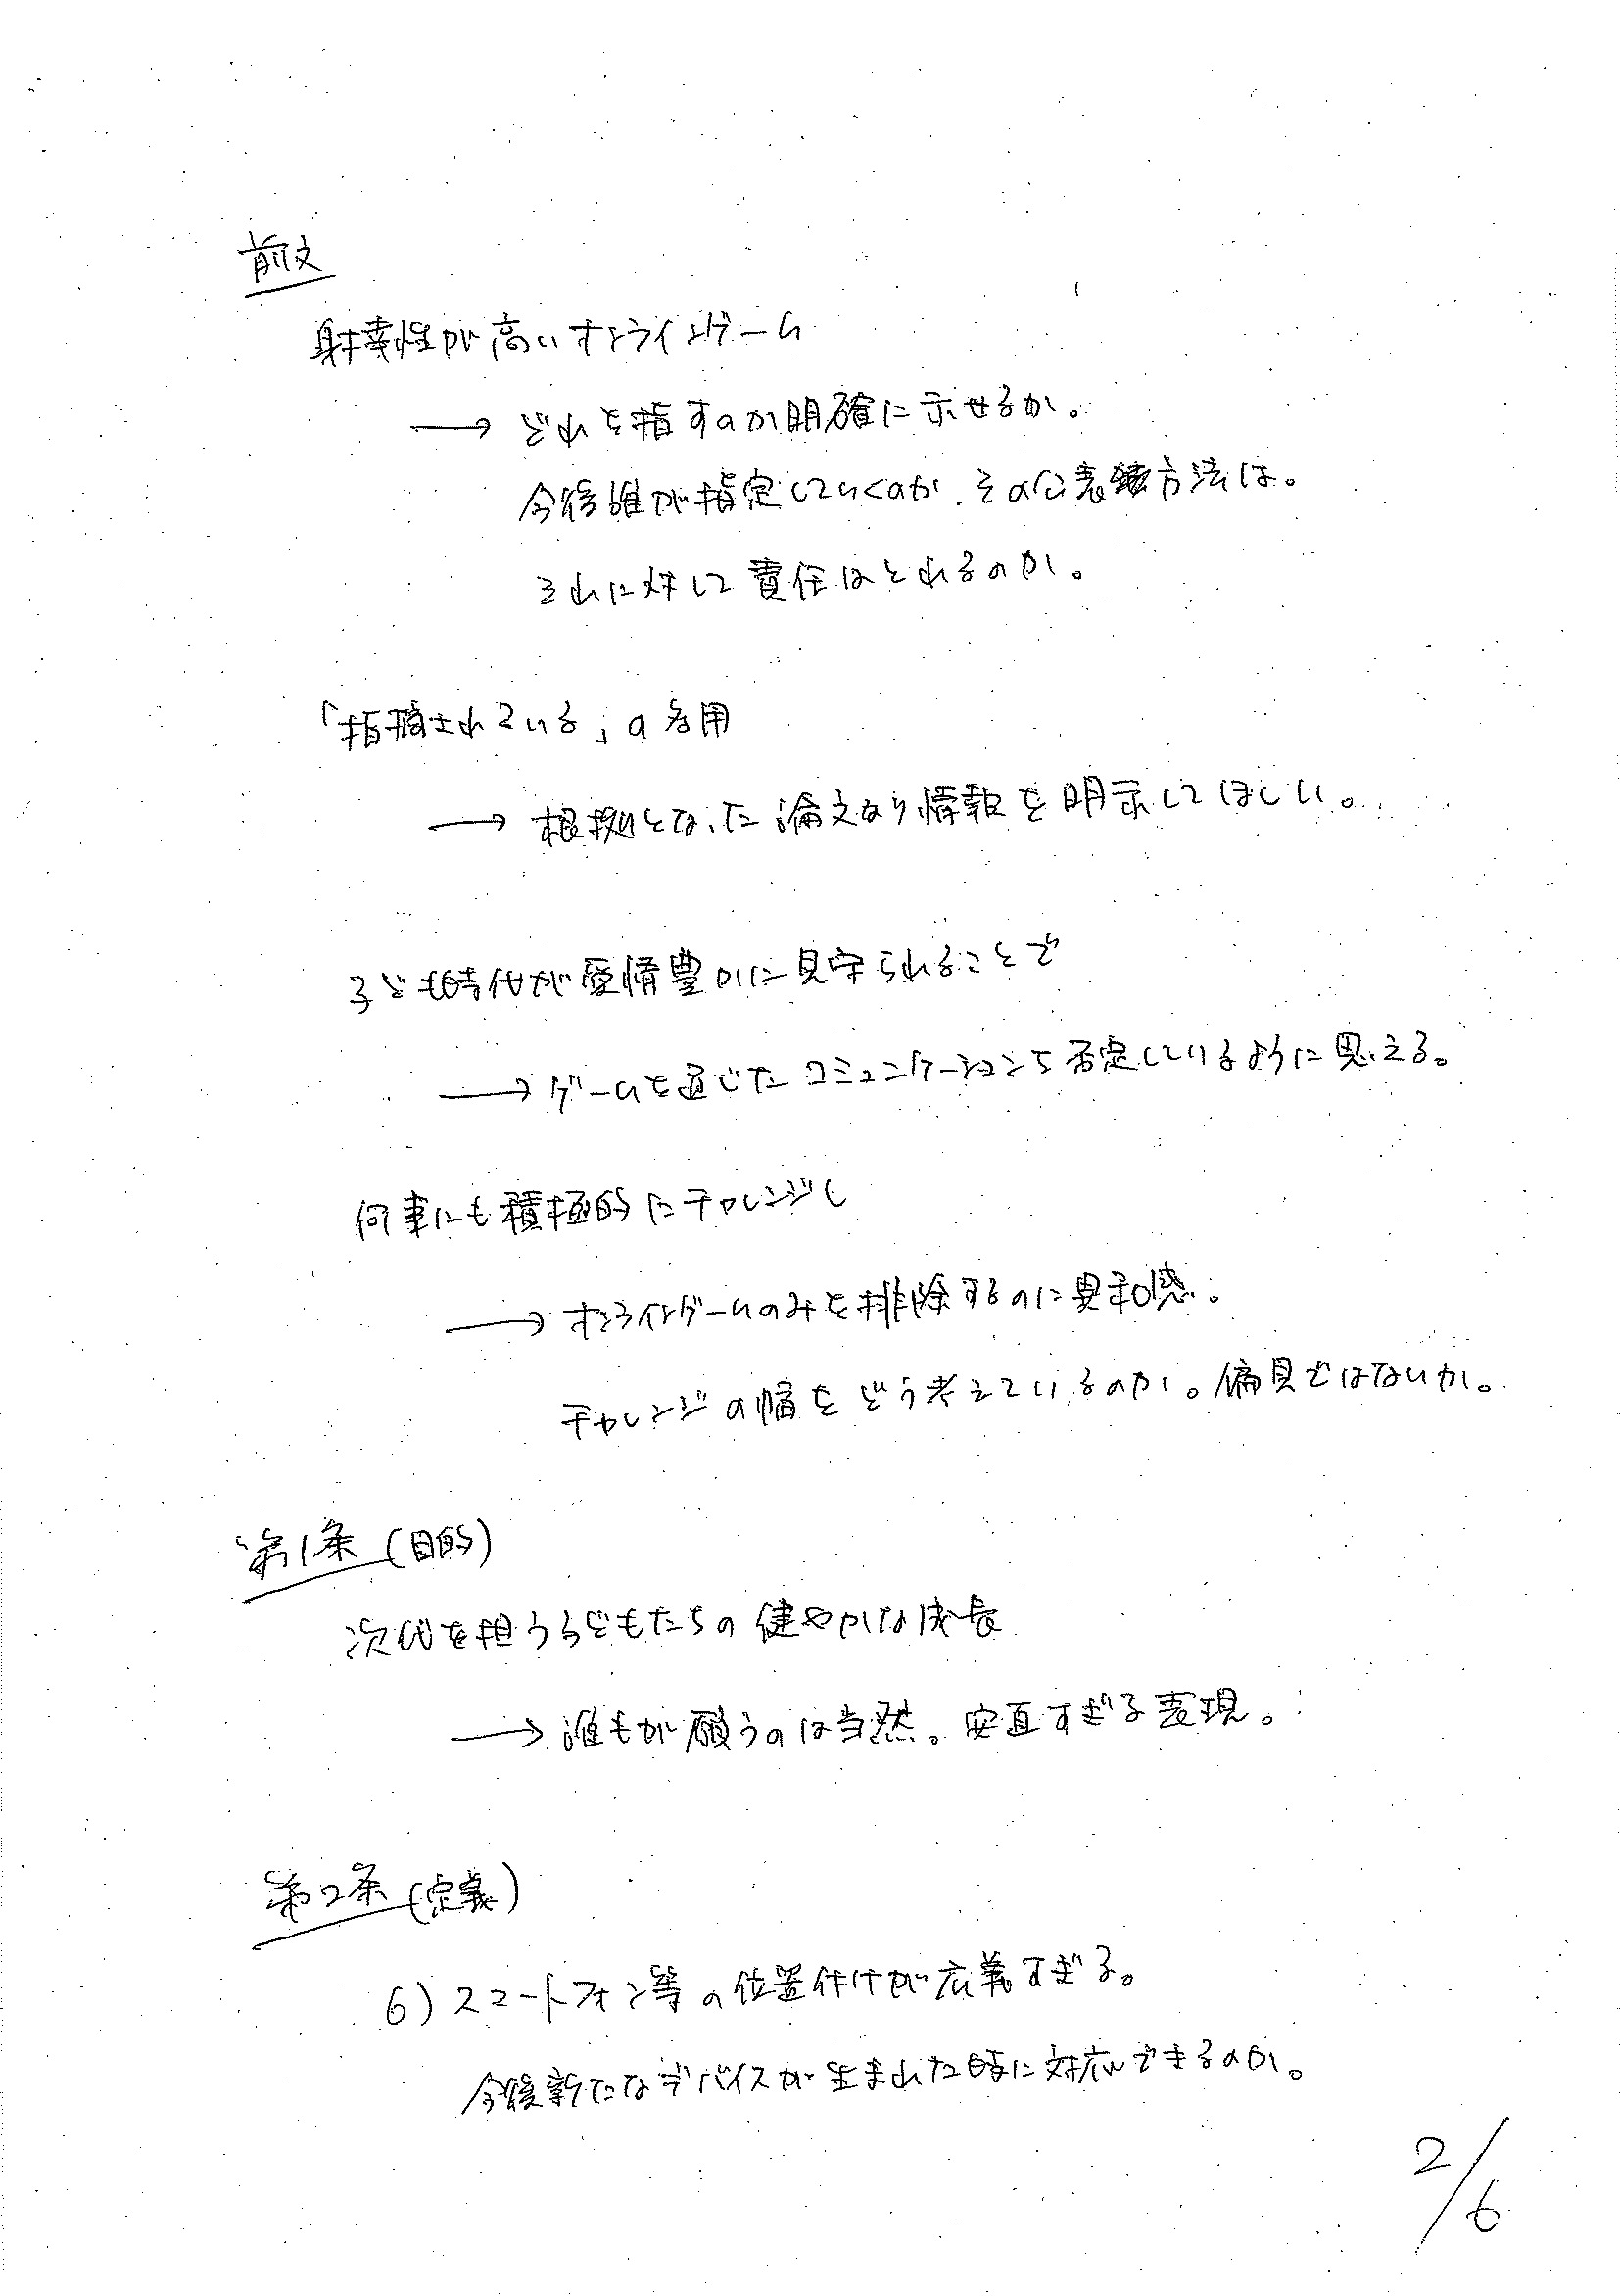 前文
射幸性が高いオンラインゲーム
→ どれを指すのか明確に示せるか。
今後誰が指定していくのか、その公表方法は。
それに対して責任はとれるのか。
「指摘されている」の多用
→ 根拠となった論文なり情報を明示してほしい。
子ども時代が愛情豊かに見守られることで
→ ゲームを通じたコミュニケーションを否定しているように思える。
何事にも積極的にチャレンジし
→ オンラインゲームのみを排除するのに異和感。
チャレンジの幅をどう考えているのか。偏見ではないか。
第1条(目的)
次代を担う子どもたちの健やかな成長
→ 誰もが願うのは当然。安直すぎる表現。
第2条(定義)
6) スマートフォン等の位置付けが広義すぎる。
今後新たなデバイスが生まれた時に対応できるのか。
2/6